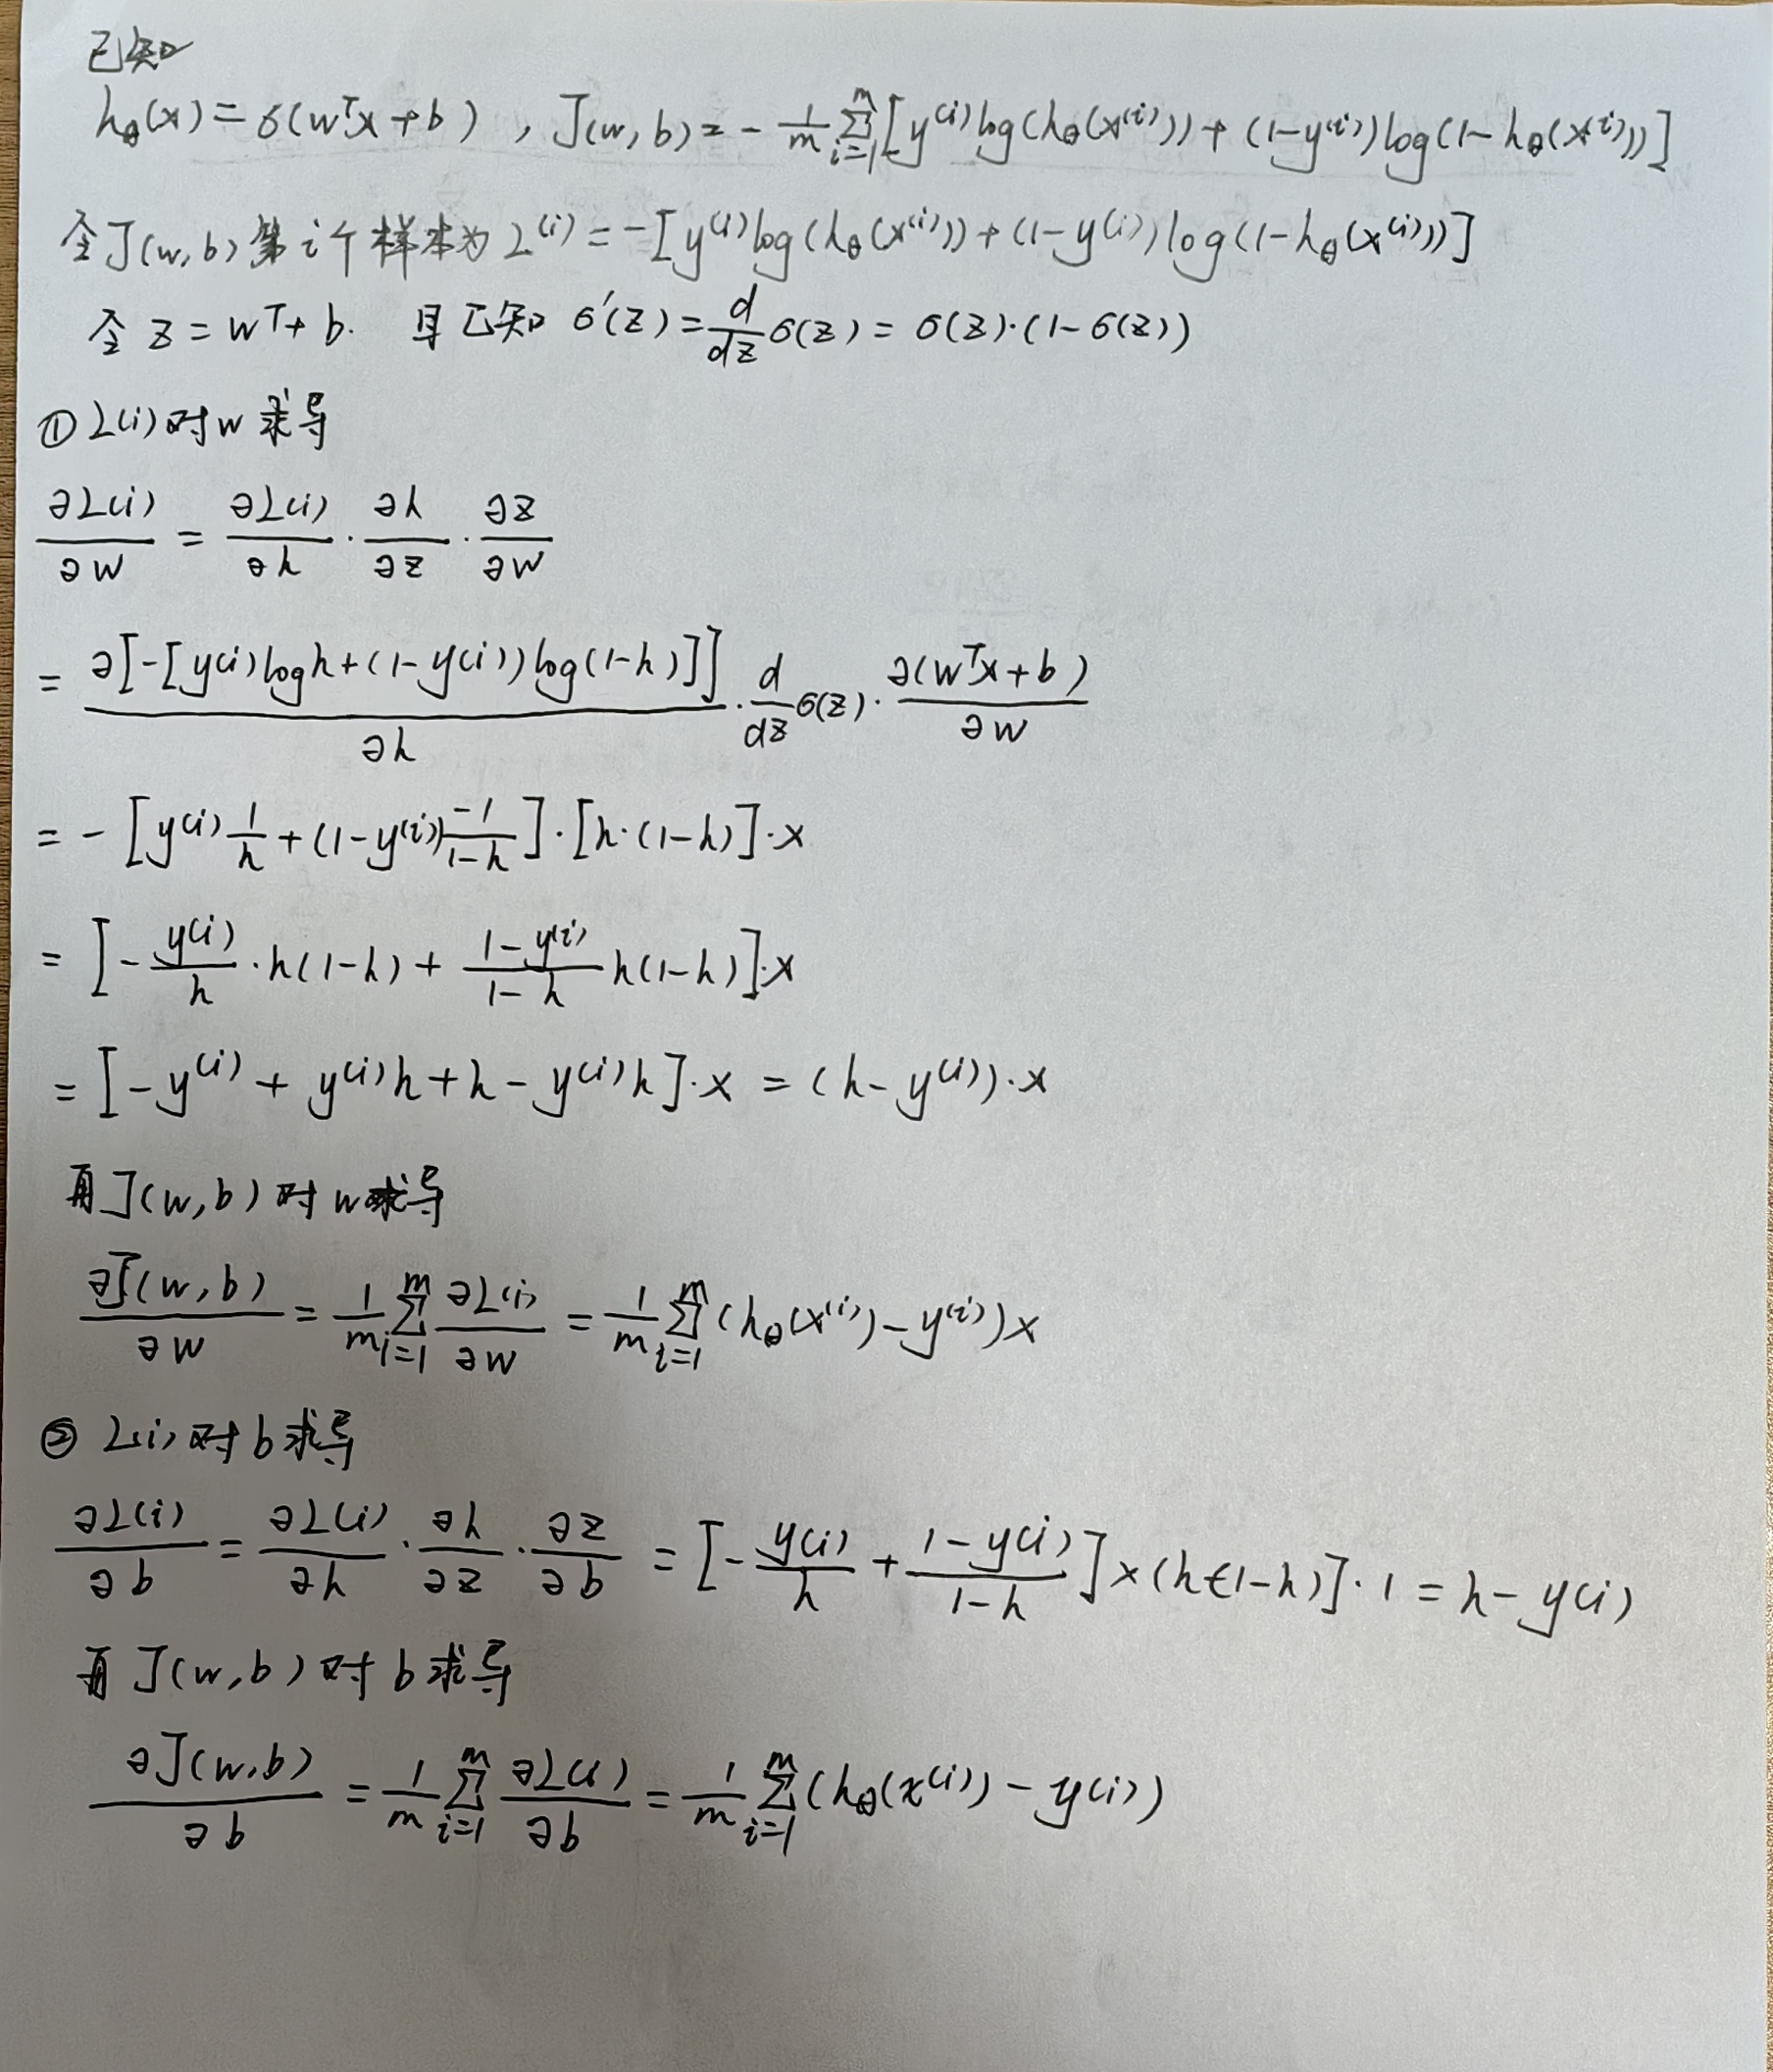 已知
h_θ(x) = σ(wᵀx + b) , J(w, b) = - 1/m Σ_{i=1}^{m} [y^{(i)} log(h_θ(x^{(i)})) + (1-y^{(i)}) log(1-h_θ(x^{(i)}))]
令J(w,b) 第i个样本为 L^{(i)} = -[y^{(i)} log(h_θ(x^{(i)})) + (1-y^{(i)}) log(1-h_θ(x^{(i)}))]
令 z = wᵀ + b. 且已知 σ'(z) = d/dz σ(z) = σ(z)·(1-σ(z))
① L(i) 对 w 求导
∂L(i)/∂w = ∂L(i)/∂h · ∂h/∂z · ∂z/∂w
= ∂[-[y(i) log h + (1-y(i)) log(1-h)]]/∂h · d/dz σ(z) · ∂(wᵀx + b)/∂w
= - [y^{(i)} 1/h + (1-y^{(i)}) -1/(1-h)] · [h·(1-h)] · x
= [- y^{(i)}/h · h(1-h) + (1-y^{(i)})/(1-h) h(1-h)]·x
= [-y^{(i)} + y^{(i)}h + h - y^{(i)}h]·x = (h - y^{(i)})·x
再J(w,b) 对 w求导
∂J(w,b)/∂w = 1/m Σ_{i=1}^{m} ∂L^{(i)}/∂w = 1/m Σ_{i=1}^{m} (h_θ(x^{(i)}) - y^{(i)}) x
② L(i) 对 b 求导
∂L(i)/∂b = ∂L(i)/∂h · ∂h/∂z · ∂z/∂b = [- y(i)/h + (1-y(i))/(1-h)] × (h(1-h)]·1 = h - y(i)
再 J(w,b) 对 b 求导
∂J(w,b)/∂b = 1/m Σ_{i=1}^{m} ∂L(i)/∂b = 1/m Σ_{i=1}^{m} (h_θ(x^{(i)}) - y(i))